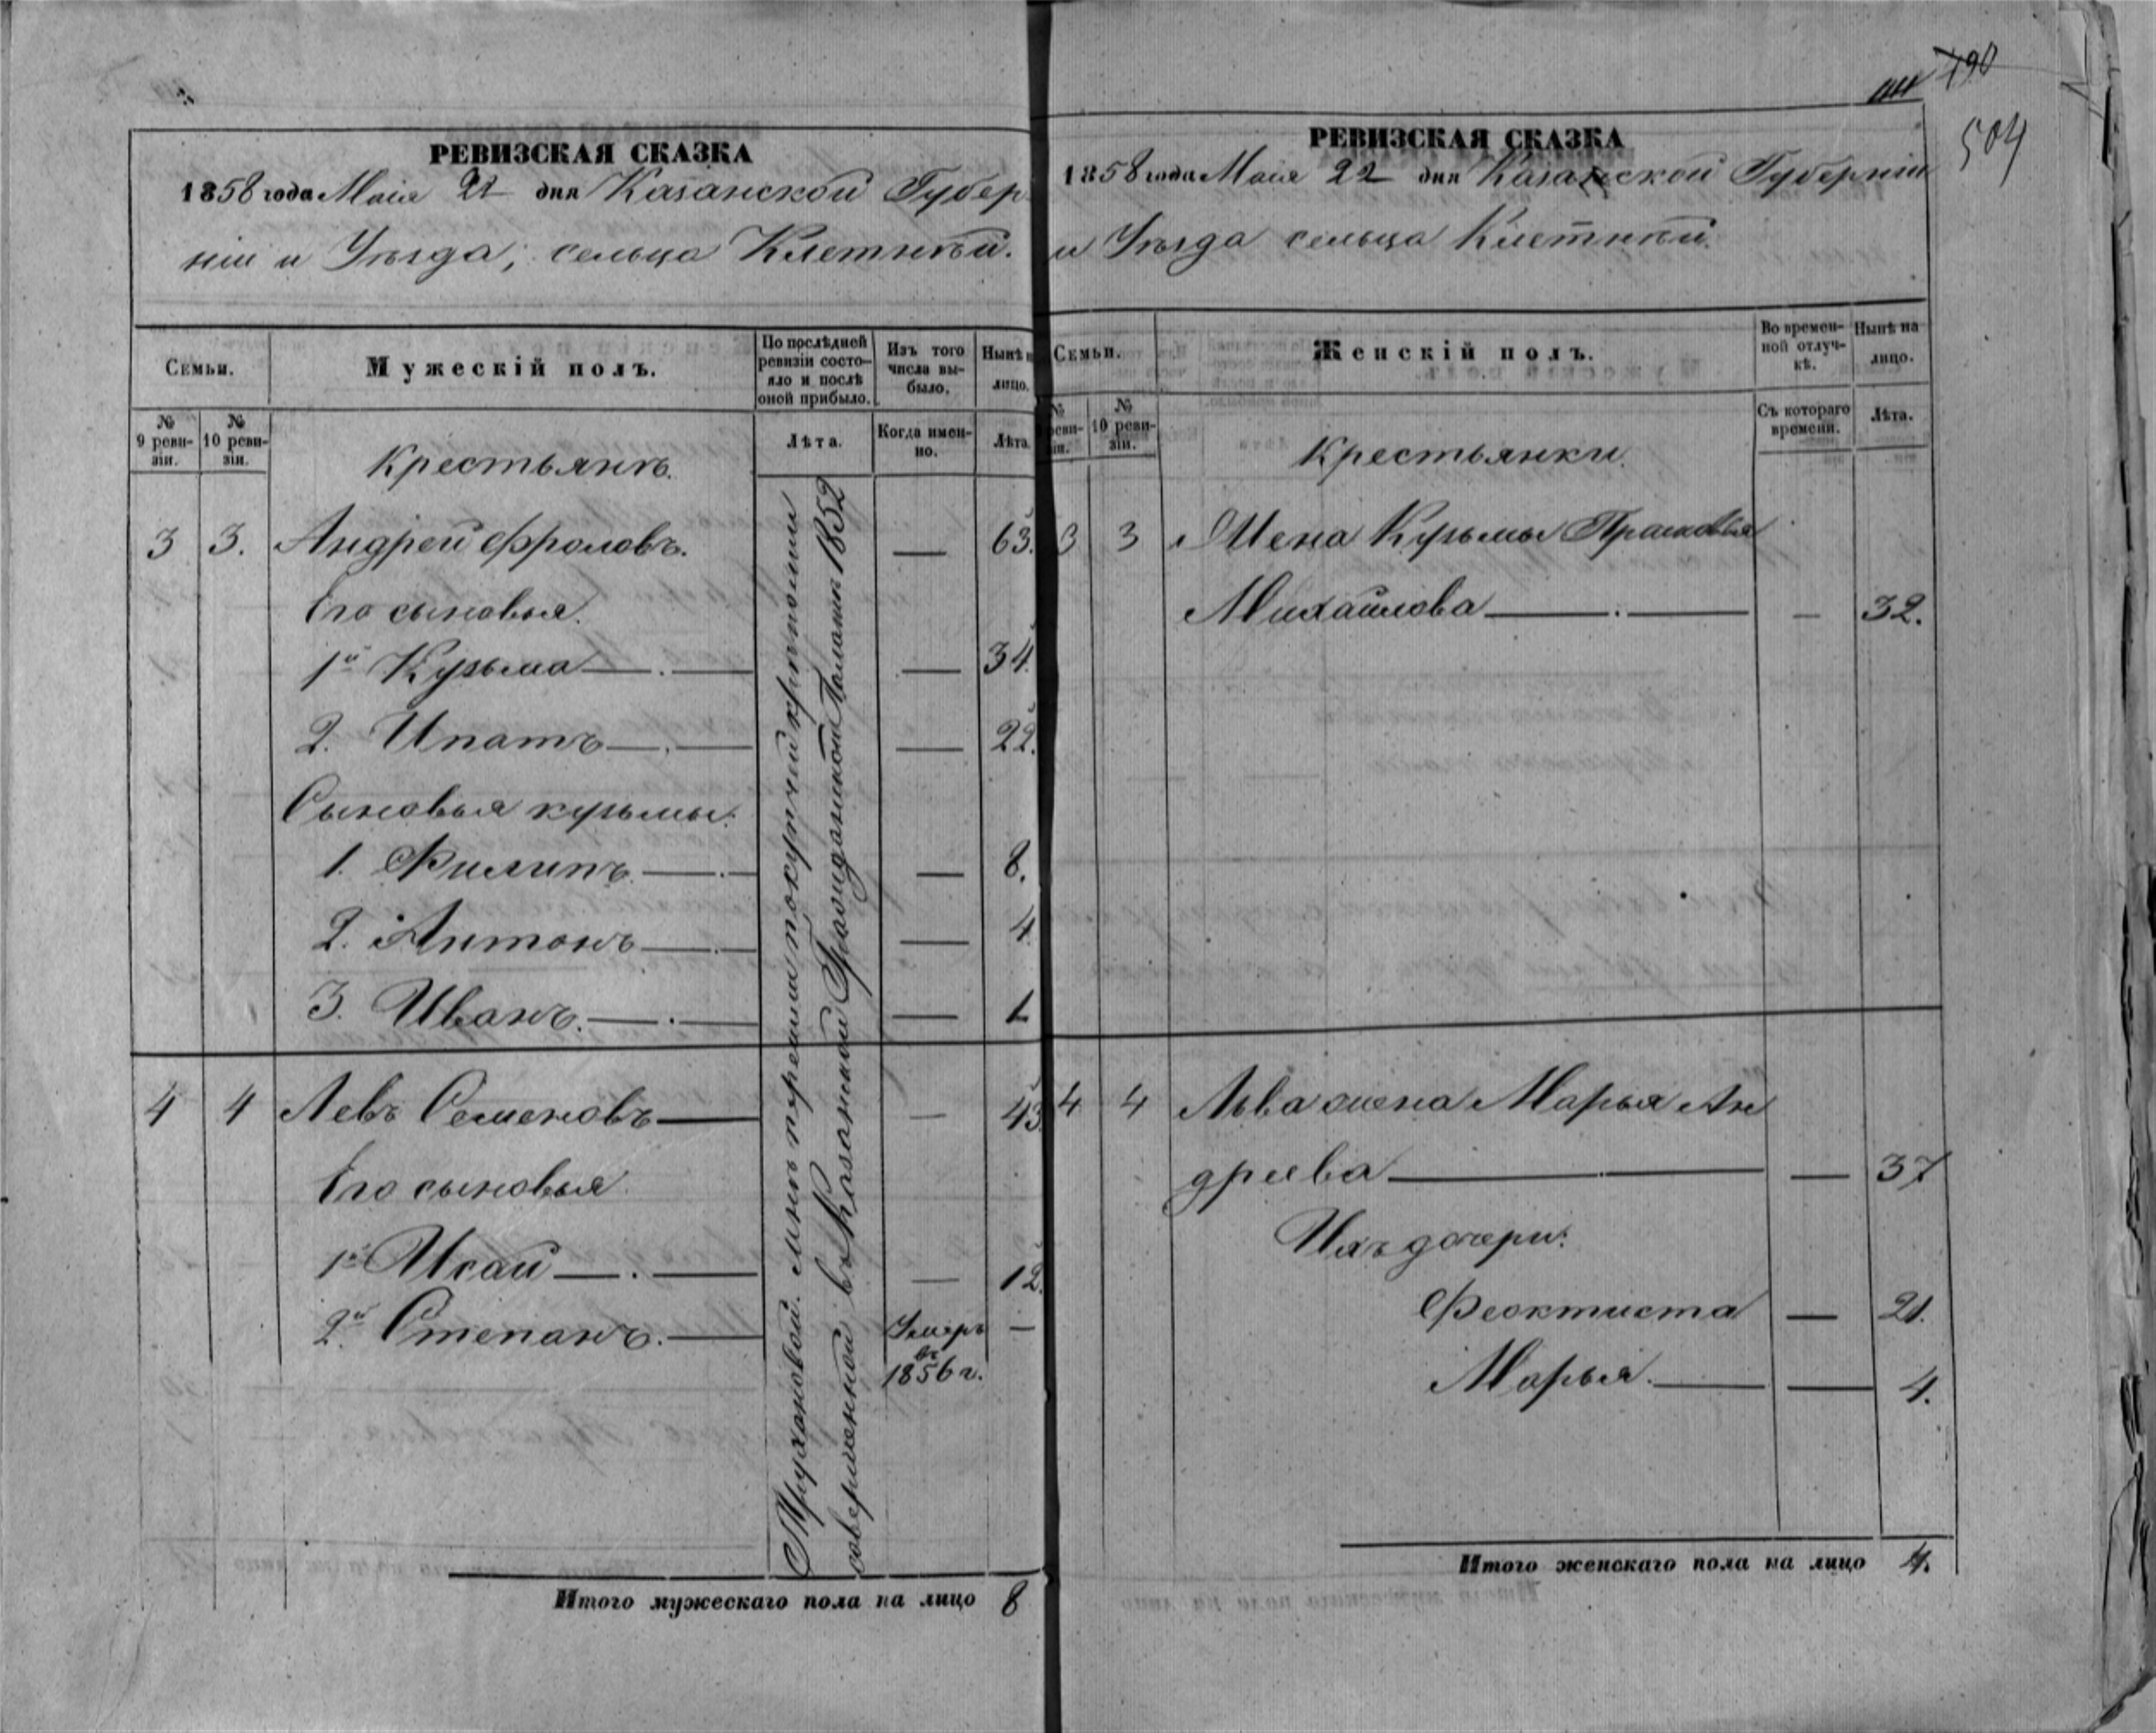 190
504
РЕВИЗСКАЯ СКАЗКА
1858 года Маія 22 дня Казанской Губер
ніи и Уѣзда, сельца Клетнѣй.
Семьи.
Мужескій полъ.
По послѣдней ревизіи состо-
яло и послѣ
оной прибыло.
Изъ того
числа вы-
было.
Нынѣ н
лицо.
№
9 реви-
зіи.
№
10 реви-
зіи.
Крестьянъ.
Лѣта.
Когда имен-
но.
Лѣта.
3 3. Андрей Фроловъ. — 63.
Его сыновья.
1й Кузьма — . — — 34.
2. Ипатъ — . — — 22.
Сыновья Кузьмы:
1. Филипъ — . — — 8.
2. Антонъ — . — — 4
3. Иванъ. — . — — 1
4 4 Левъ Семеновъ — — 43.
Его сыновья
1й Исай — . — — 12.
2й Степанъ. — Умеръ —
въ
1856 г.
Трухановой. мнѣ перешли по купчей крѣпости
совершенной въ Казанской Гражданской Палатѣ 1852
Итого мужескаго пола на лицо 8
РЕВИЗСКАЯ СКАЗКА
1858 года Маія 22 дня Казанской Губерніи
и Уѣзда сельца Клетнѣй.
Семьи.
Женскій полъ.
Во времен-
ной отлуч-
кѣ.
Нынѣ на
лицо.
№
реви-
зіи.
№
10 реви-
зіи.
Крестьянки.
Съ котораго
времени.
Лѣта.
3 3 Жена Кузьмы Прасковья
Михайлова — . — — 32.
4 4 Льва жена Марья Ан
дреева — — 37
Ихъ дочери:
Феоктиста — 21.
Марья. — — 4.
Итого женскаго пола на лицо 4.